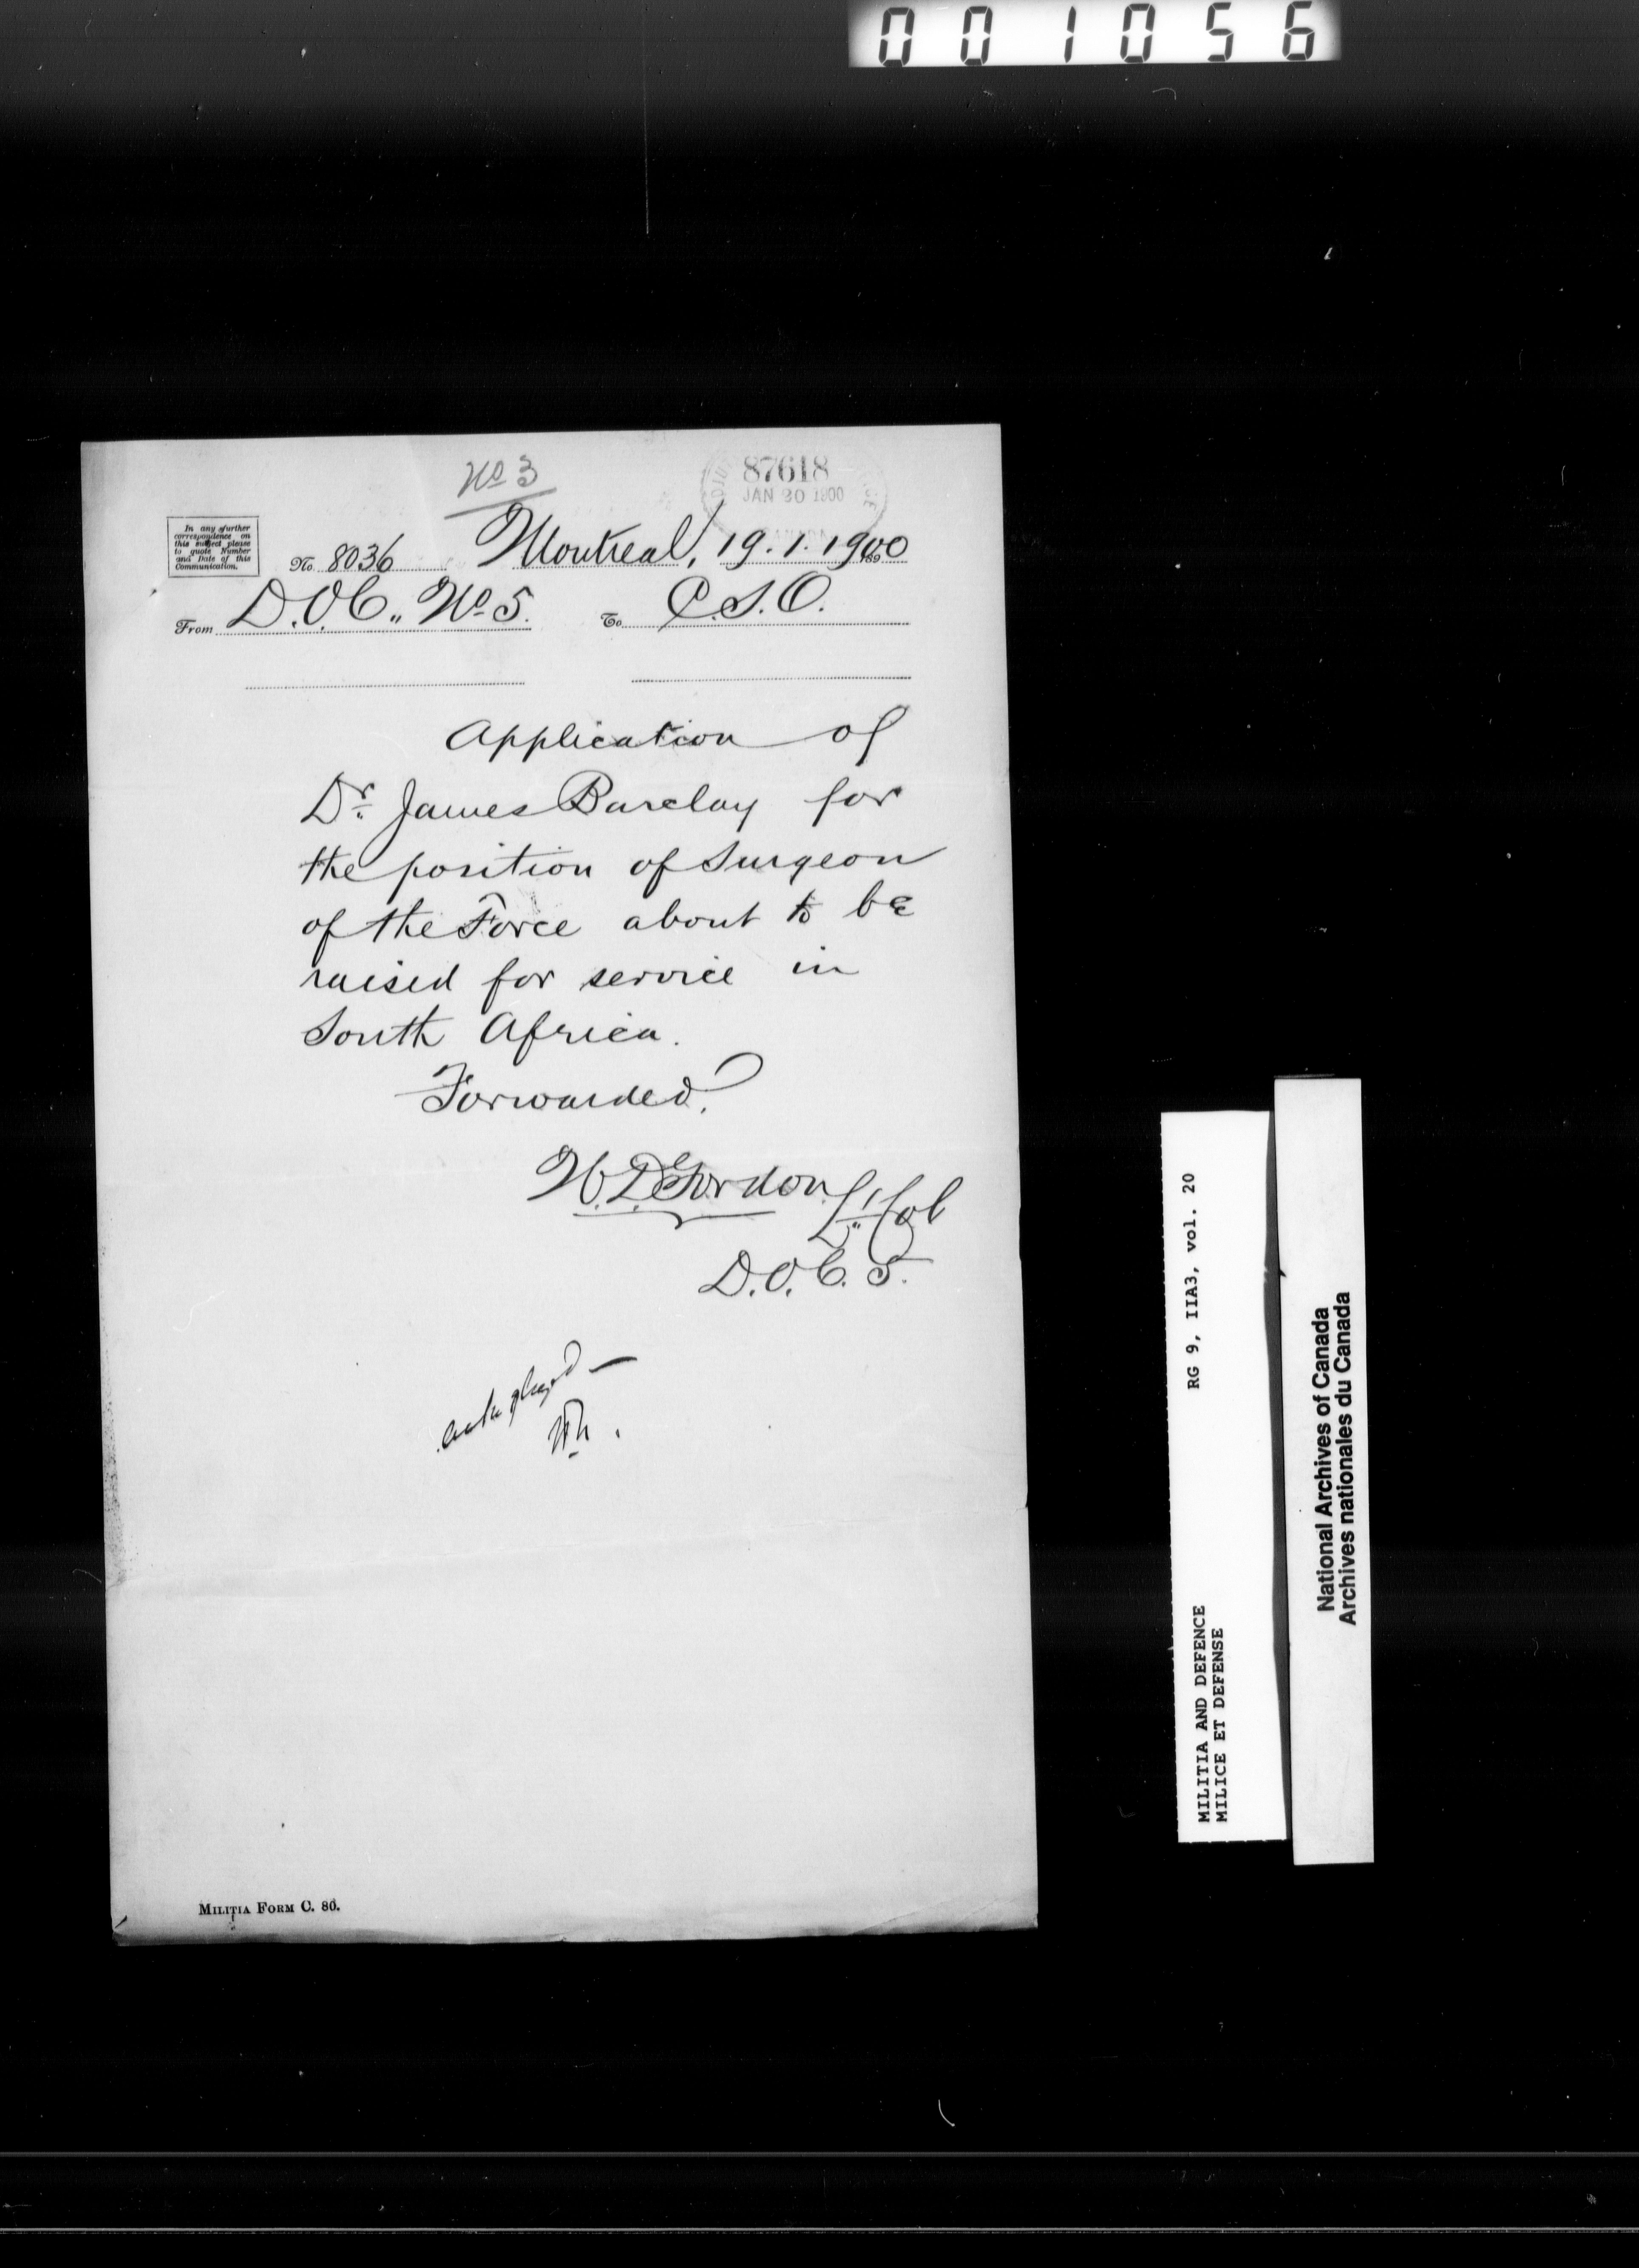 001056
No 3
87618
JAN 20 1900
In any further
correspondence on
this subject please
to quote Number
and Date of this
Communication.
No. 8036 Montreal, 19.1.1900
From D.O.C. No 5. To C.S.O.
Application of
Dr. James Barclay for
the position of Surgeon
of the Force about to be
raised for service in
South Africa.
Forwarded.
W.D. Gordon Lt. Col
D.O.C. 5.
MILITIA FORM C. 86.
RG 9, IIA3, vol. 20
MILITIA AND DEFENCE
MILICE ET DEFENSE
National Archives of Canada
Archives nationales du Canada